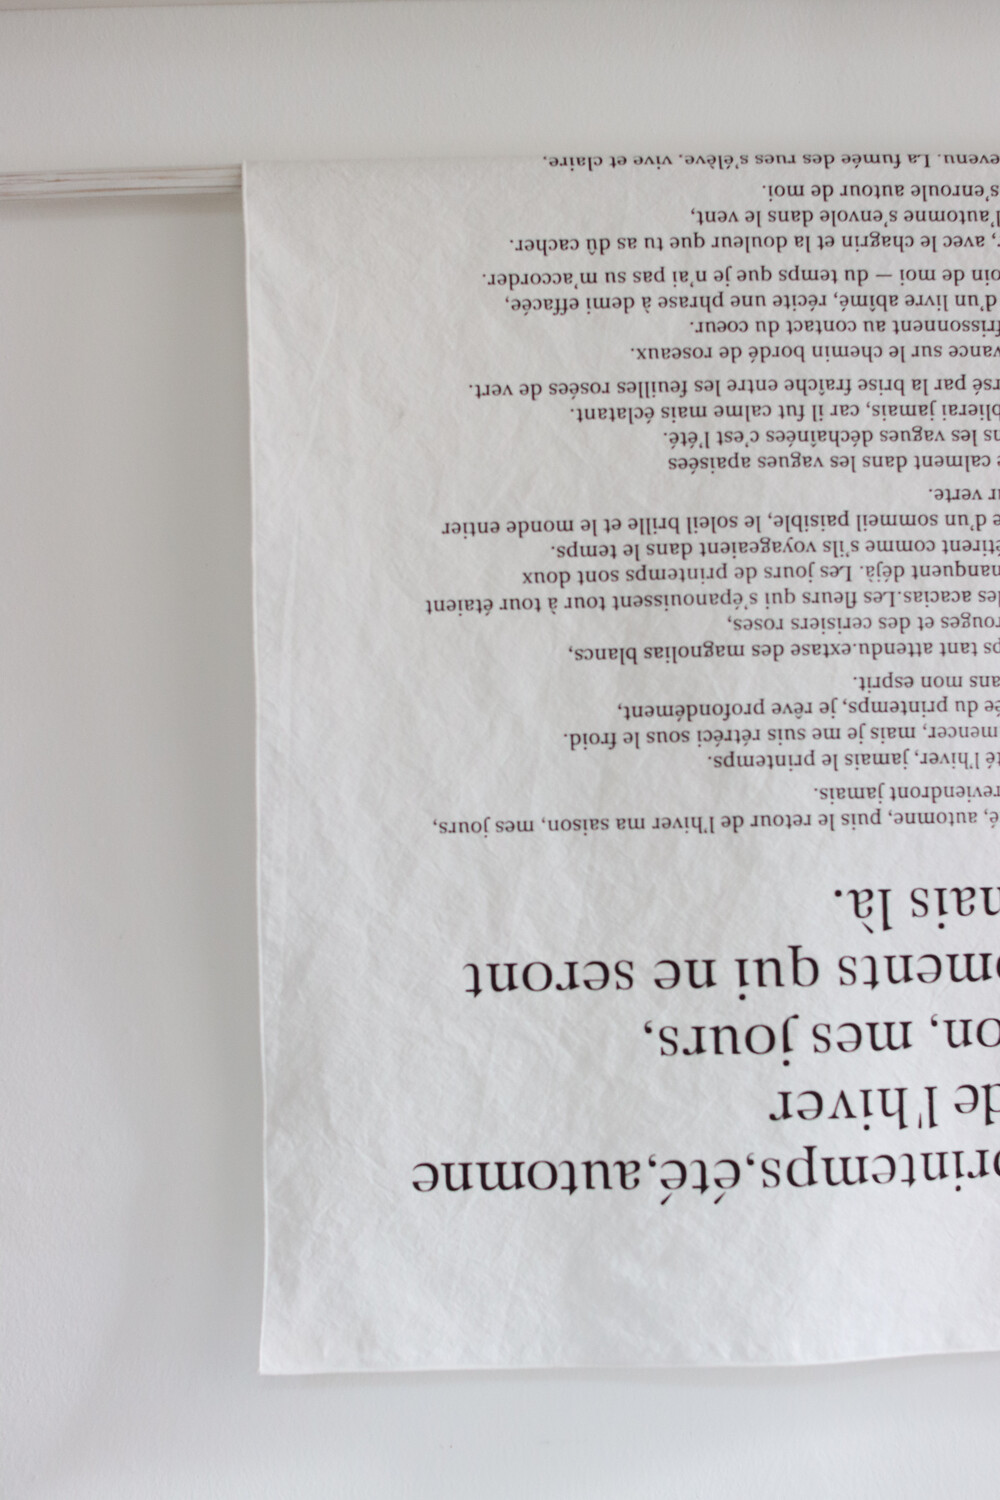 printemps,été,automne
de l'hiver
on, mes jours,
oments qui ne seront
mais là.
é, automne, puis le retour de l'hiver ma saison, mes jours,
reviendront jamais.
té l'hiver, jamais le printemps.
mencer, mais je me suis rétréci sous le froid.
ée du printemps, je rêve profondément,
ans mon esprit.
ps tant attendu.extase des magnolias blancs,
rouges et des cerisiers roses,
des acacias.Les fleurs qui s'épanouissent tour à tour étaient
manquent déjà. Les jours de printemps sont doux
étirent comme s'ils voyageaient dans le temps.
e d'un sommeil paisible, le soleil brille et le monde entier
ur verte.
e calment dans les vagues apaisées
ns les vagues déchaînées c'est l'été.
blierai jamais, car il fut calme mais éclatant.
rsé par la brise fraîche entre les feuilles rosées de vert.
vance sur le chemin bordé de roseaux.
frissonnent au contact du coeur.
d'un livre abîmé, récite une phrase à demi effacée,
oin de moi — du temps que je n'ai pas su m'accorder.
r, avec le chagrin et la douleur que tu as dû cacher.
l'automne s'envole dans le vent,
s'enroule autour de moi.
evenu. La fumée des rues s'élève, vive et claire.